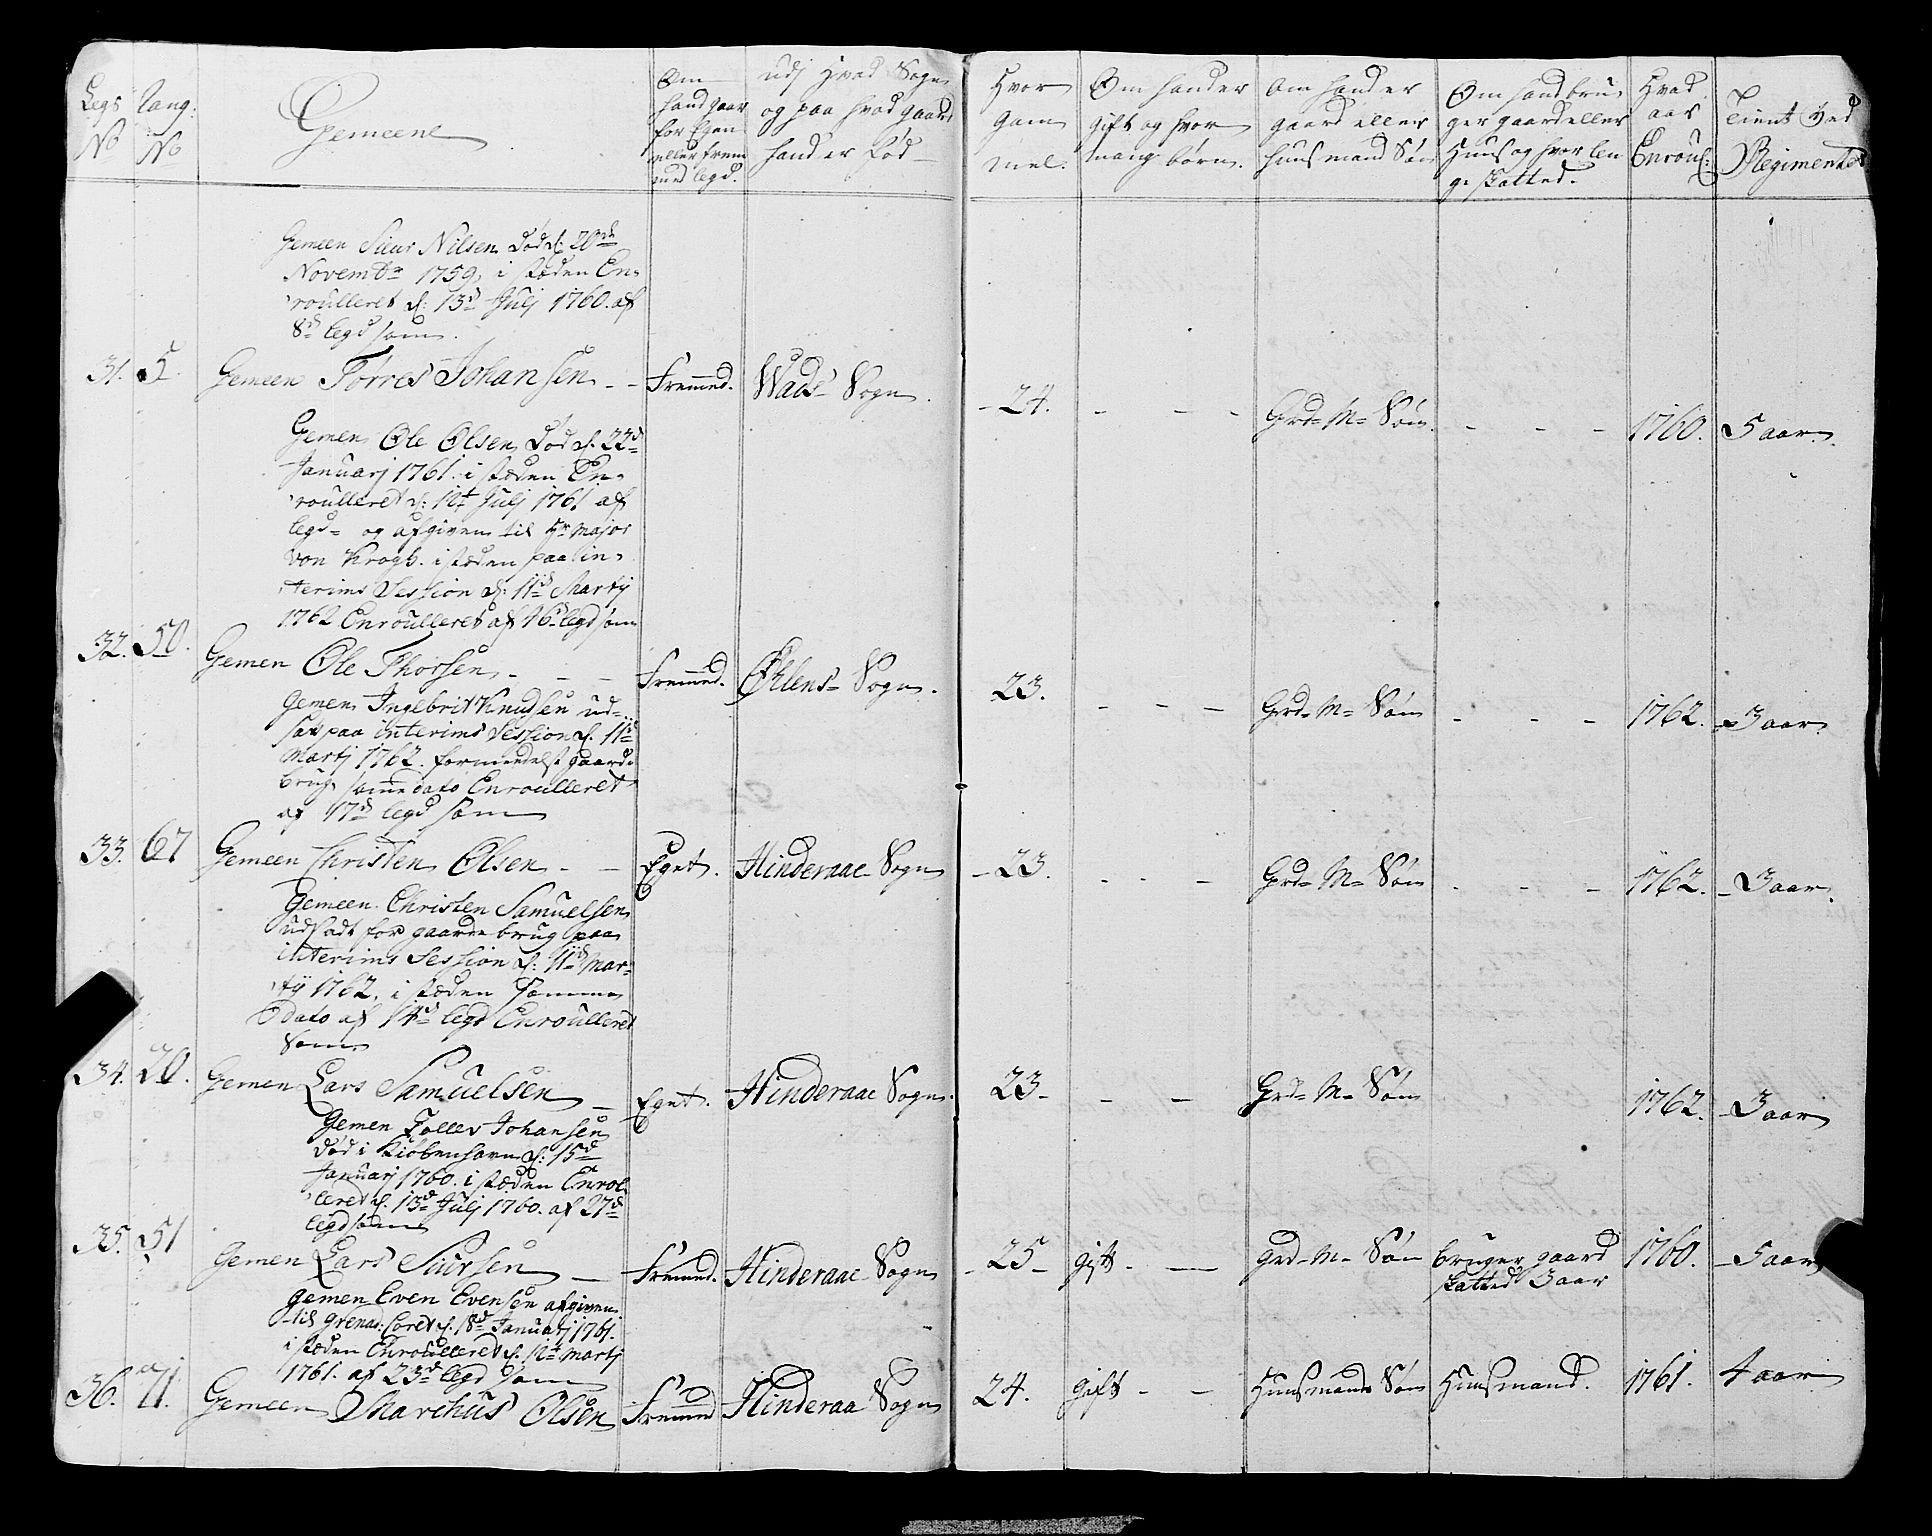 Legs No
Rang: No
Gemeene
Om hand gaar for Egen eller frem med legd.
udj Hvad Sogn og paa hvad gaard hand er fød
Hvor gam mel.
Om hand er gift og hvor mang børn.
Om hand er gaard eller Huusmand Søn
Om hand bru ger gaard eller Huus og hvor len ge skatted.
Hvad aar Enroul:
Tient ved Regimentet
Gemeen Siur Nilsen Død d: 20de
Novembr 1759, i stæden En-
roulleret d: 13d Julj 1760. af
8d legd som.
31. 5. Gemeen Torres Johansen - - Fremmed. Wads- Sogn. - 24. - - - Grd- M- Søn. - - - 1760. 5 aar.
Gemen Ole Olsen Død d. 22d
Januarj 1761. i stæden En-
roulleret d: 12t Julj 1761 af
legd- og afgiven til Hr Major
von Krogh. i stæden paa in-
terims Session d: 11d Martij
1762 Enroulleret af 16d legd som
32. 50. Gemen Ole Thorsen - - - Fremmed. Ølens- Sogn. 23. - - - Grd- M- Søn - - - 1762. - 3 aar.
Gemen Ingebrit Knudsen ud-
sat paa interims Session d. 11d
Martj 1762. formedelst gaards
brug, samme dato Enroulleret
af 17d legd som
33. 67 Gemeen Christen Olsen - - Eget. Hinderaae Sogn - 23. - - - Grd- M- Søn - - - 1762. - 3 aar.
Gemeen Christen Samuelsen
udsadt for gaards brug paa
interims Session d: 11d Mar-
tij 1762. i stæden samme
dato af 14d legd Enroulleret
som
34. 20. Gemen Lars Samuelsen - Eget. Hinderaae Sogn. 23- - - Grd- M- Søn 1762. - 3 aar
Gemen Tollev Johansen
død i Kiøbenhavn d: 15d
Januarj 1760. i stæden Enrol-
leret d. 13d Julj 1760. af 27d
legd som
35. 51 Gemen Lars Siursen - Fremed. Hinderaae Sogn - 25- gift - - Grd- M- Søn bruger gaard skatted 3 aar 1760. - 5 aar
Gemen Even Evensen afgiven
til Grenad: Coret d. 18d Januarj 1761.
i stæden Enroulleret d. 12t Martj
1761. af 23d legd som
36. 71. Gemeen Marchus Olsen Fremmed Hinderaa Sogn 24. gift - - Huusmands Søn Huusmand. 1761. 4 aar